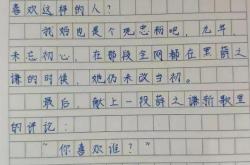 喜欢这样的人?
我妈也是个死忠粉吧,几年,
未忘初心,在那段全网都在黑薛之
谦的时候,她仍未改当初。
最后,献上一段薛之谦新歌里
的评记:
“你喜欢谁?”